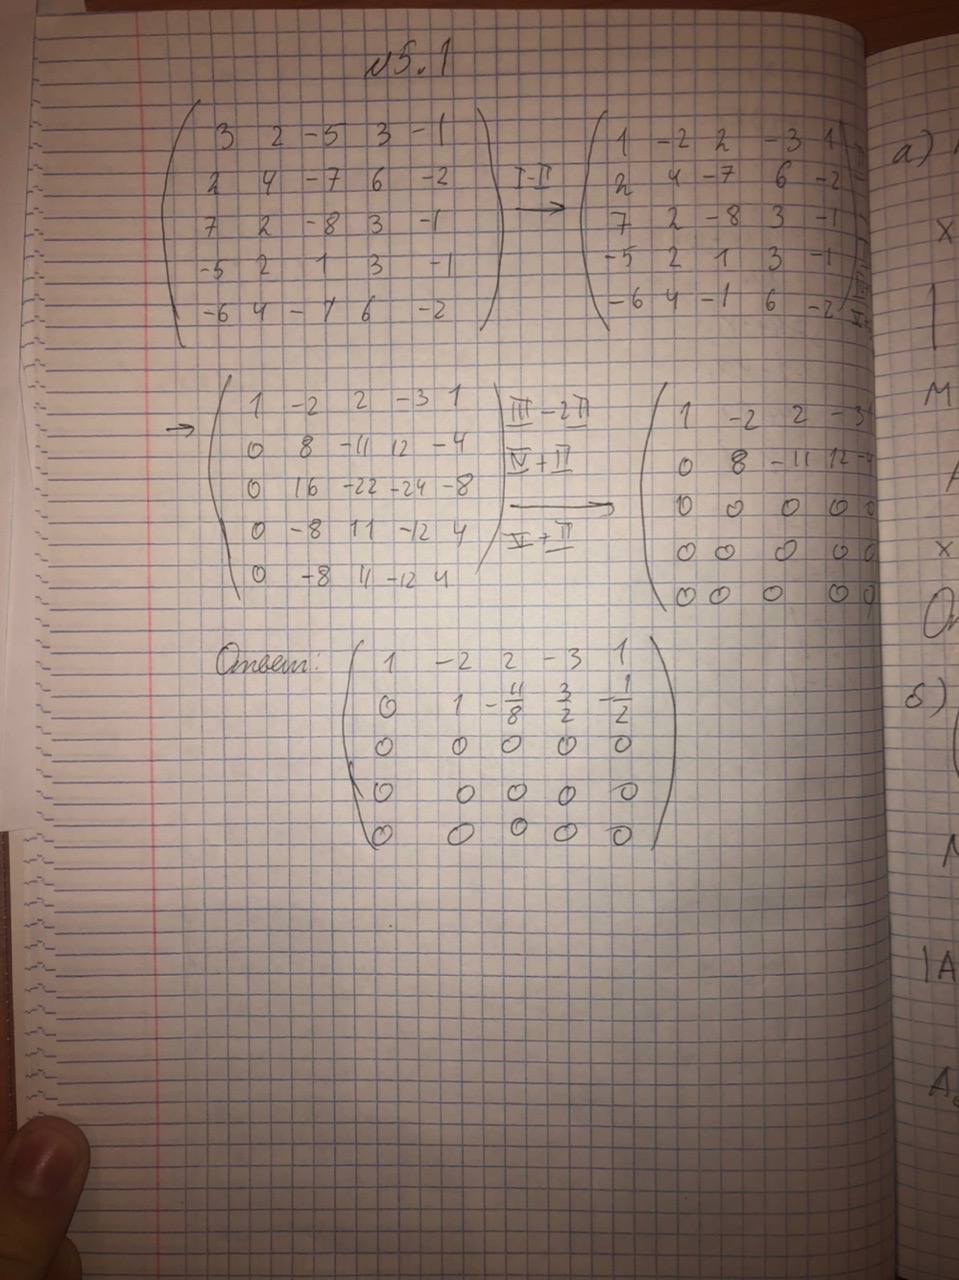 №5.1
3 2 -5 3 -1
2 4 -7 6 -2
7 2 -8 3 -1
-5 2 1 3 -1
-6 4 -1 6 -2
I-II
→
1 -2 2 -3 1
2 4 -7 6 -2
7 2 -8 3 -1
-5 2 1 3 -1
-6 4 -1 6 -2
→
1 -2 2 -3 1
0 8 -11 12 -4
0 16 -22 -24 -8
0 -8 11 -12 4
0 -8 11 -12 4
III-2II
IV+II
V+II
→
1 -2 2 -3
0 8 -11 12 -4
0 0 0 0 0
0 0 0 0 0
0 0 0 0 0
Ответ:
1 -2 2 -3 1
0 1 -11/8 3/2 -1/2
0 0 0 0 0
0 0 0 0 0
0 0 0 0 0
а)
x
М
x
б)
|A